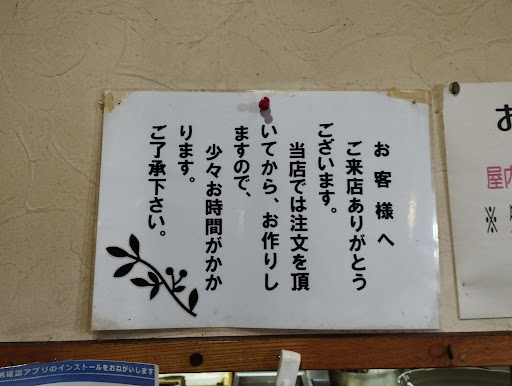 お客様へ
ご来店ありがとう
ございます。
当店では注文を頂
いてから、お作りし
ますので、
少々お時間がかか
ります。
ご了承下さい。
お
屋内
※
確認アプリのインストールをおねがいします